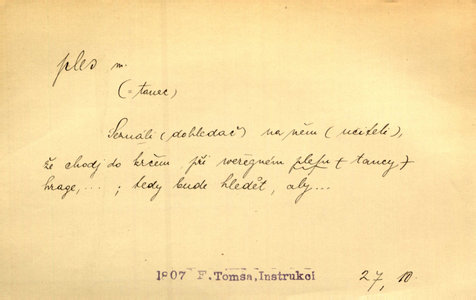 ples m.
(= tanec)
Seználi (dohledač) na něm (učiteli),
že chodj do krčem při weřegném plesu (tancy)
hrage, ... ; tedy bude hledět, aby ...
1807 F. Tomsa, Instrukcí
27, 10.